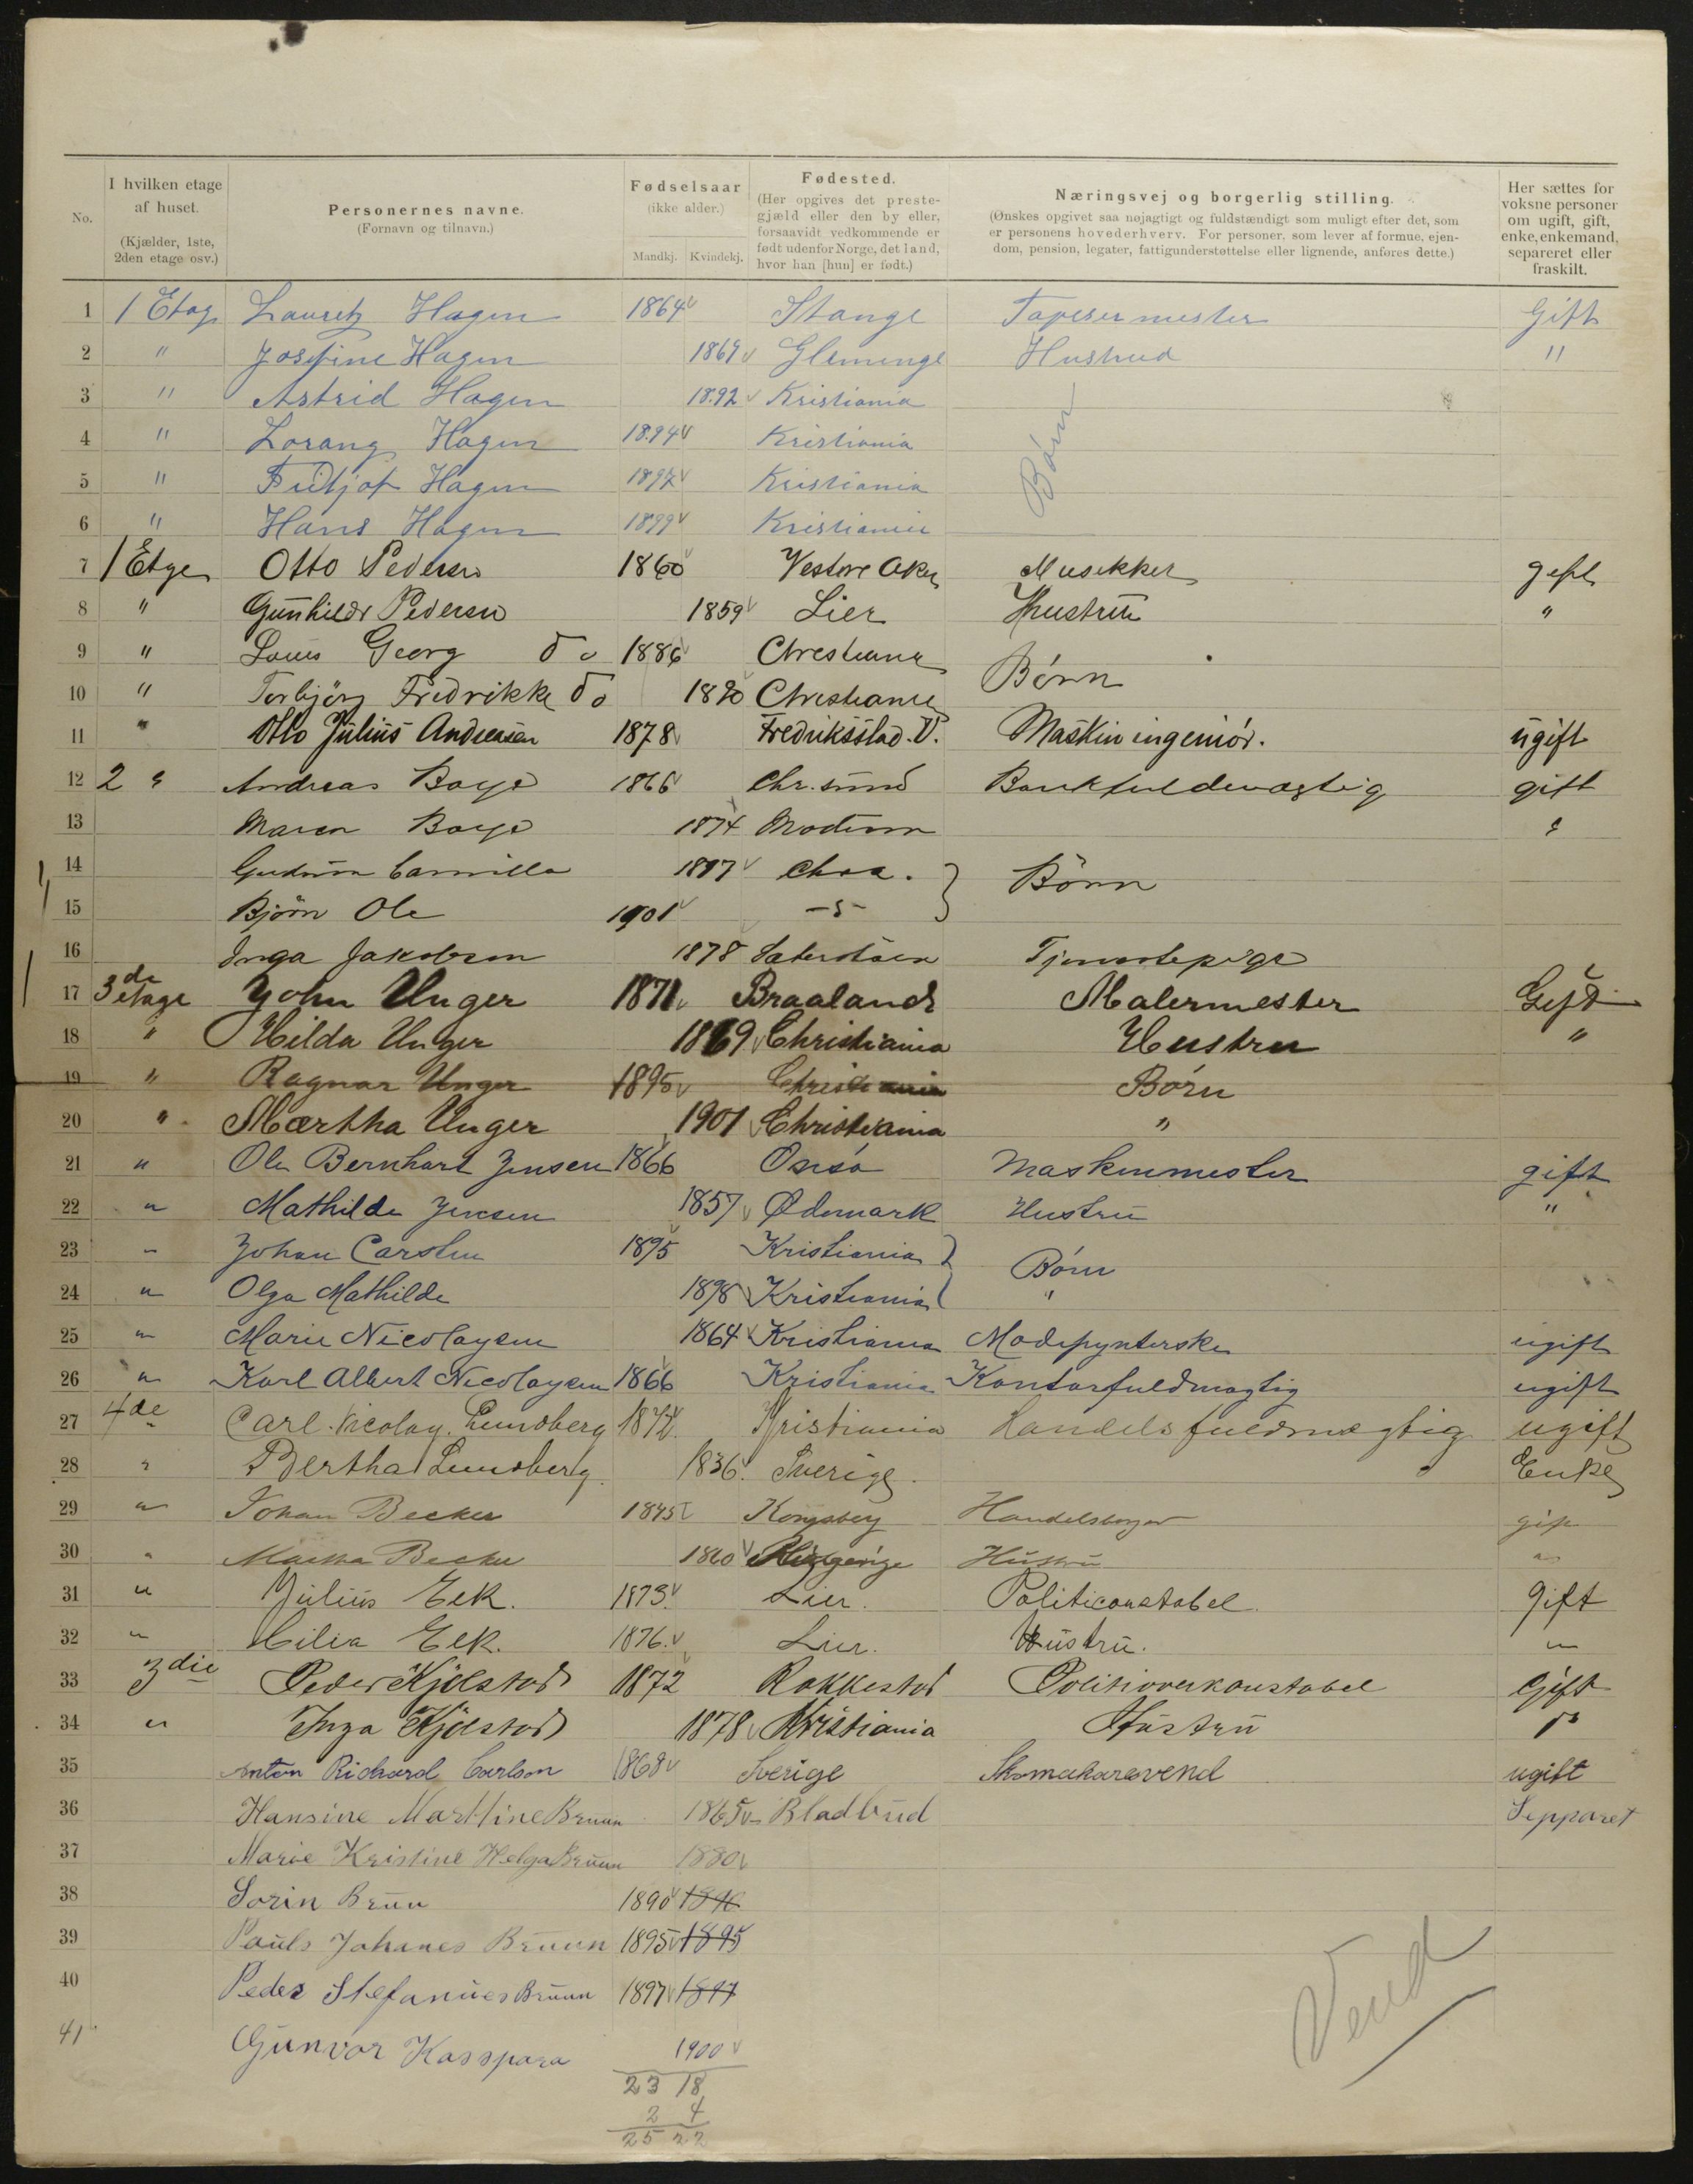 No. | I hvilken etage af huset. (Kjælder, 1ste, 2den etage osv.) | Personernes navne. (Fornavn og tilnavn.) | Fødselsaar (ikke alder.) Mandkj. Kvindekj. | Fødested. (Her opgives det prestegjæld eller den by eller, forsaavidt vedkommende er født udenfor Norge, det land, hvor han [hun] er født.) | Næringsvej og borgerlig stilling. (Ønskes opgivet saa nøjagtigt og fuldstændigt som muligt efter det, som er personens hovederhverv. For personer, som lever af formue, ejendom, pension, legater, fattigunderstøttelse eller lignende, anføres dette.) | Her sættes for voksne personer om ugift, gift, enke, enkemand, separeret eller fraskilt.
1 1 Etag Lauritz Hagen 1864 Stange Tapesermester Gift
2 " Josefine Hagen 1869 Glemenge Hustrud "
3 " Astrid Hagen 1892 Kristiania Børn
4 " Lorang Hagen 1894 Kristiania
5 " Fridtjof Hagen 1897 Kristiania
6 " Hans Hagen 1899 Kristiania
7 1 Etge Otto Pedersen 1860 Vestre Aker Musikker gift
8 " Gunhild Pedersen 1859 Lier Hustru "
9 " Louis Georg Do 1886 Christiania
10 " Torbjörg Fredrikke Do 1890 Christiania Børn
11 " Otto Julius Andersen 1878 Fredriksstad. V. Maskiningeniør. ugift
12 2 " Andreas Boye 1866 Chr.sund Bankfuldmægtig gift
13 Maren Boye 1874 Modum "
14 Gudrun Camilla 1897 Chra. } Börn
15 Björn Ole 1901 -"-
16 Inga Jakobsen 1878 Tjenestepige
17 3de etage John Unger 1871 Braaland Malermester Gift
18 " Hilda Unger 1869 Christiania Hustru "
19 " Ragnar Unger 1895 Christiania Børn
20 " Martha Unger 1901 Christiania "
21 " Ole Bernhart Jensen 1866 Onsø Maskinmester gift
22 " Mathilde Jensen 1857 Ødemark Hustru "
23 " Johan Carsten 1895 Kristiania } Børn
24 " Olga Mathilde 1898 Kristiania "
25 " Marie Nicolaysen 1864 Kristiania Modepynterske ugift
26 " Karl Albert Nicolaysen 1866 Kristiania Kontorfuldmægtig ugift
27 4de Carl. Nicolay. Lundberg 1874. Kristiania Handelsfuldmægtig ugift
28 " Bertha Lundberg. 1836. Sverige. Enke
29 " Johan Becker 1845 Kongsberg Handelsborger gift
30 " Becker 1860 Hustru "
31 " Julius Eek. 1873. Lier. Politiconstabel gift
32 " Cilia Eek. 1876. Lier. Hustru. "
33 3die Peder Kjølstad 1872 Rakkestad Politioverkonstabel Gift
34 " Inga Kjølstad 1878 Kristiania Hustru "
35 Anton Richard Carlson 1868 Sverige Skomakaresvend ugift
36 Hansine Marttine Bruun 1865 Bladbud Sepparet
37 Marie Kristine Helga Bruun 1880
38 Sorin Bruu 1890 1890
39 Pauls Johanes Bruun 1895 1895
40 Peder Stefanues Bruun 1897 1897
41 Gunvor Kasspara 1900
23 18
2 4
25 22
Vend